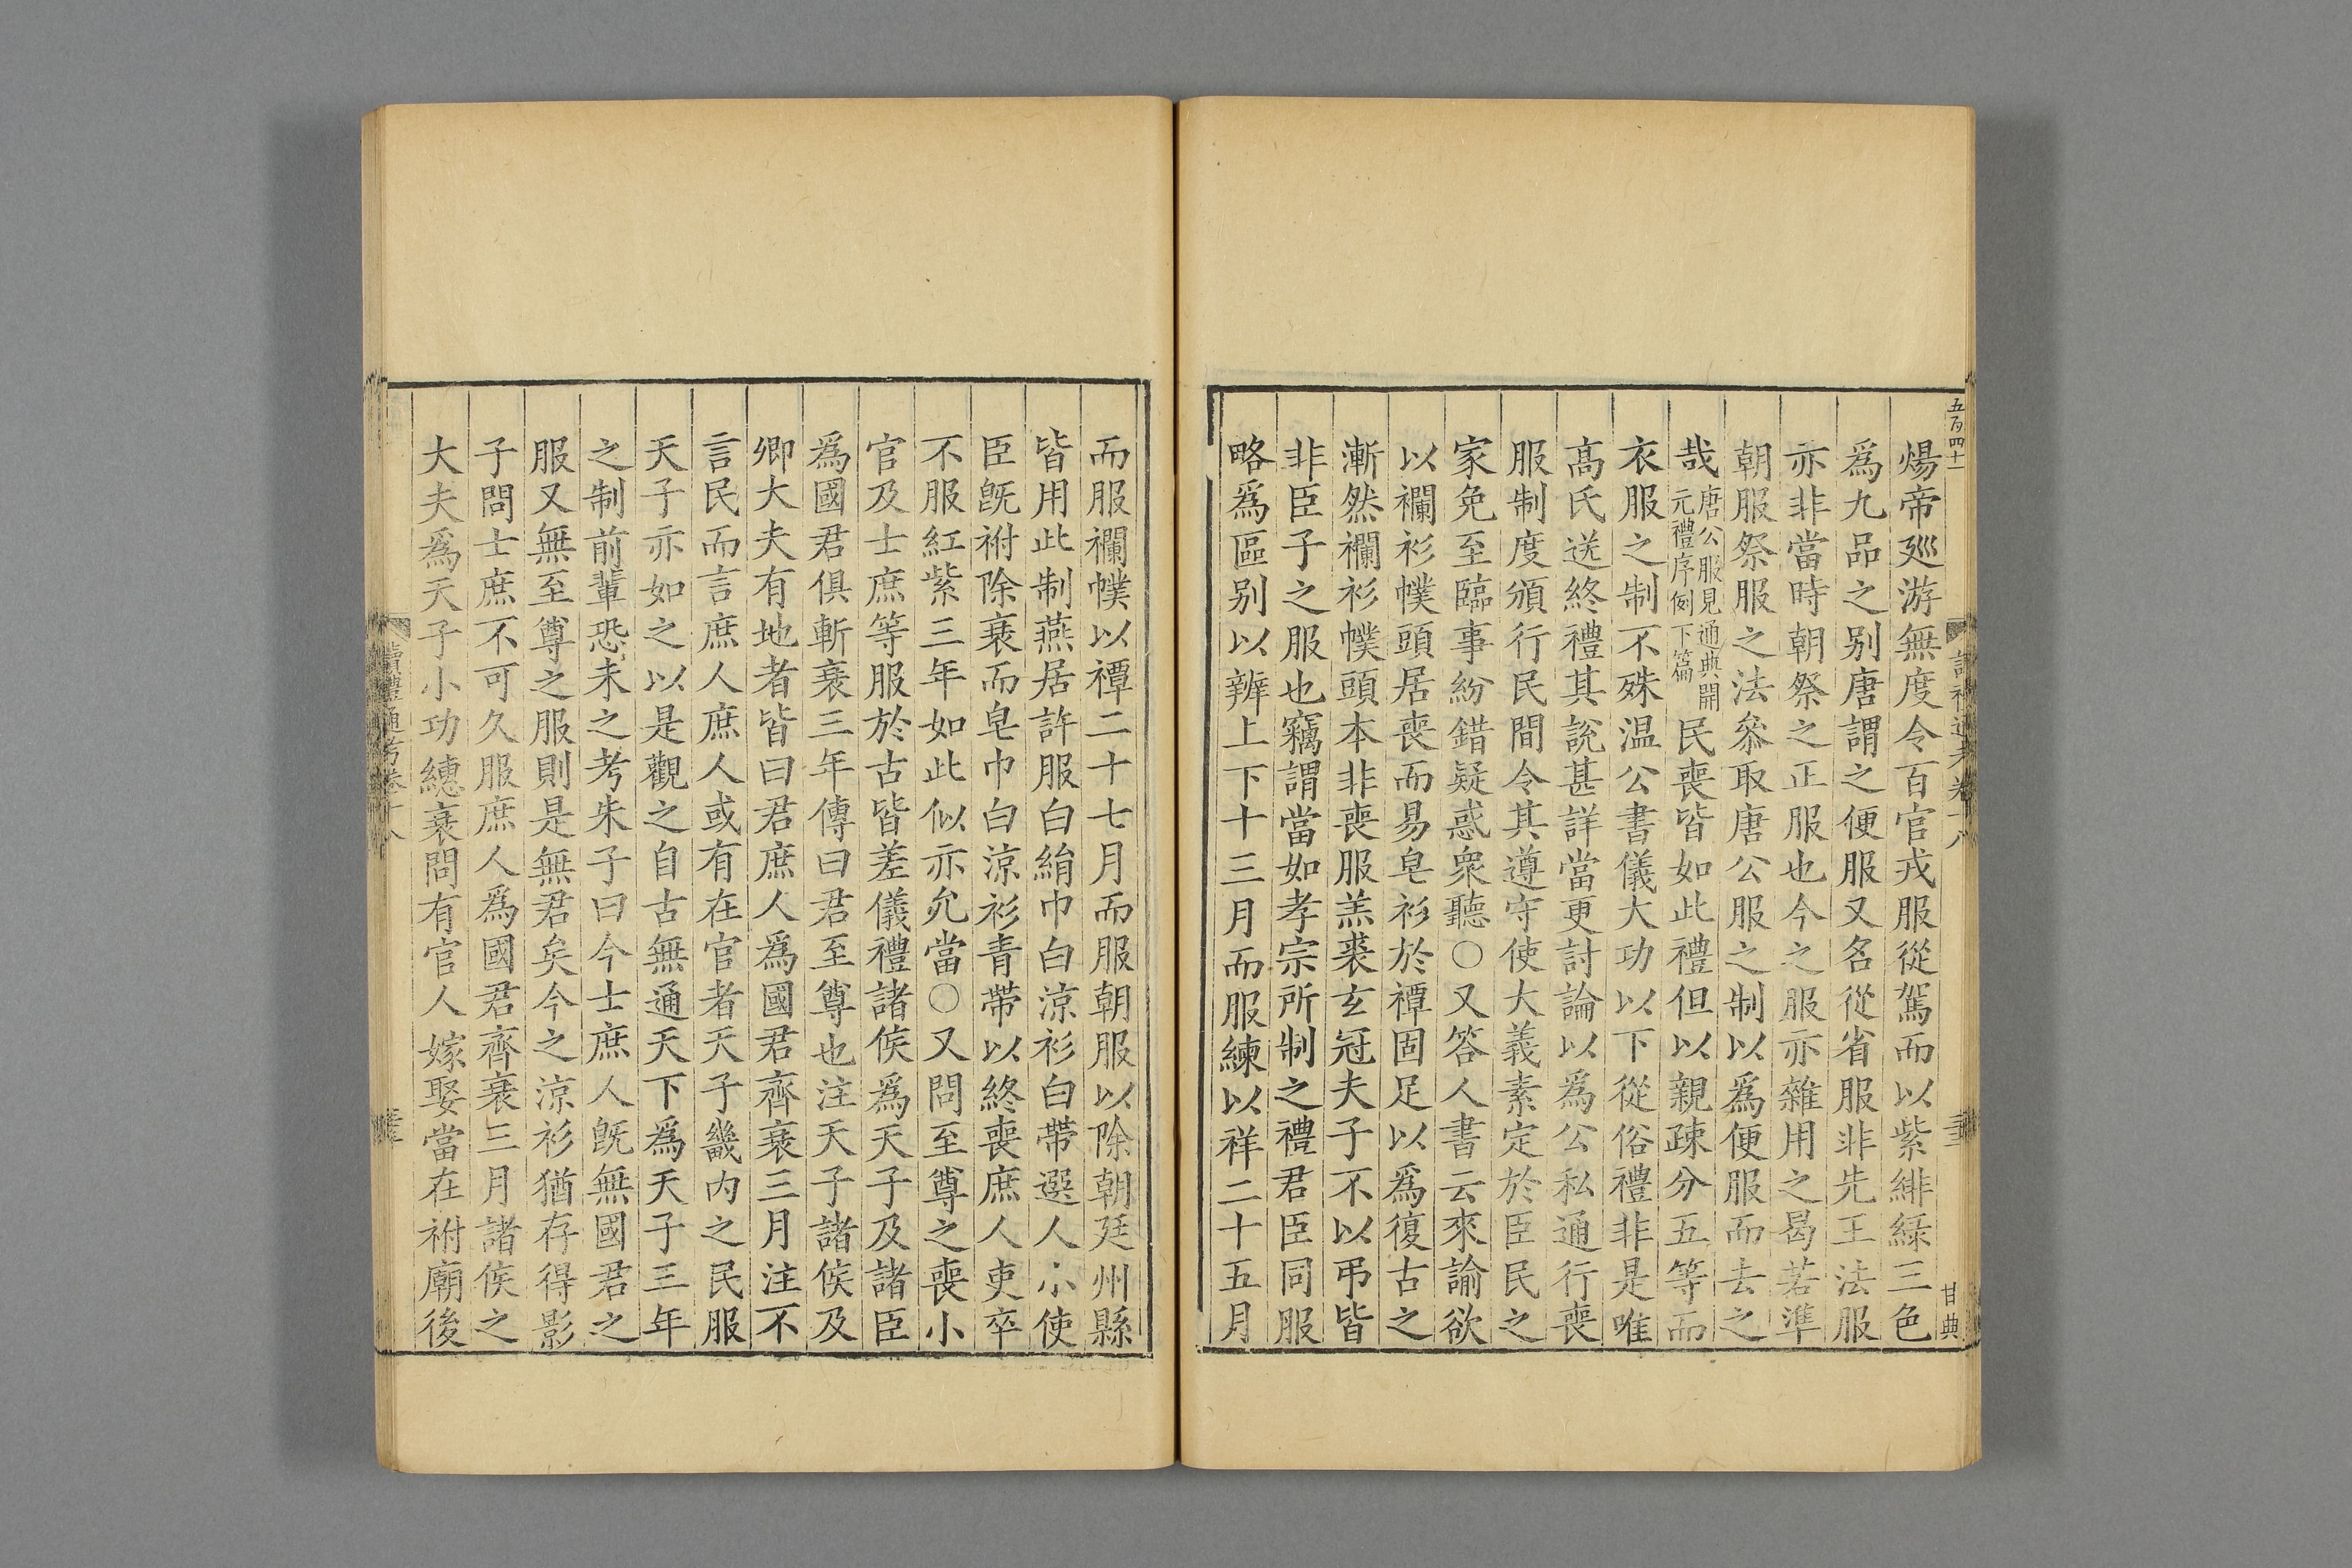 五百四十一
讀禮通考卷十八
甘典
煬帝廵游無度令百官戎服從駕而以紫緋綠三色
爲九品之别唐謂之便服又名從省服非先王法服
亦非當時朝祭之正服也今之服亦雜用之曷若準
朝服祭服之法叅取唐公服之制以爲便服而去之
哉唐公服見通典開元禮序例下篇民喪皆如此禮但以親疎分五等而
衣服之制不殊温公書儀大功以下從俗禮非是唯
高氏送終禮其說甚詳當更討論以爲公私通行喪
服制度頒行民間令其遵守使大義素定於臣民之
家免至臨事紛錯疑惑衆聽○又答人書云來諭欲
以襴衫幞頭居喪而易皂衫於禫固足以爲復古之
漸然襴衫幞頭本非喪服羔裘玄冠夫子不以弔皆
非臣子之服也竊謂當如孝宗所制之禮君臣同服
略爲區别以辨上下十三月而服練以祥二十五月
而服襴幞以禫二十七月而服朝服以除朝廷州縣
皆用此制燕居許服白絹巾白凉衫白帶選人小使
臣旣祔除衰而皂巾白凉衫青帶以終喪庶人吏卒
不服紅紫三年如此似亦允當○又問至尊之喪小
官及士庶等服於古皆差儀禮諸侯爲天子及諸臣
爲國君俱斬衰三年傳曰君至尊也注天子諸侯及
卿大夫有地者皆曰君庶人爲國君齊衰三月注不
言民而言庶人庶人或有在官者天子畿內之民服
天子亦如之以是觀之自古無通天下爲天子三年
之制前輩恐未之考朱子曰今士庶人旣無國君之
服又無至尊之服則是無君矣今之凉衫猶存得影
子問士庶不可久服庶人爲國君齊衰三月諸侯之
大夫爲天子小功繐衰問有官人嫁娶當在祔廟後
讀禮通考卷十八